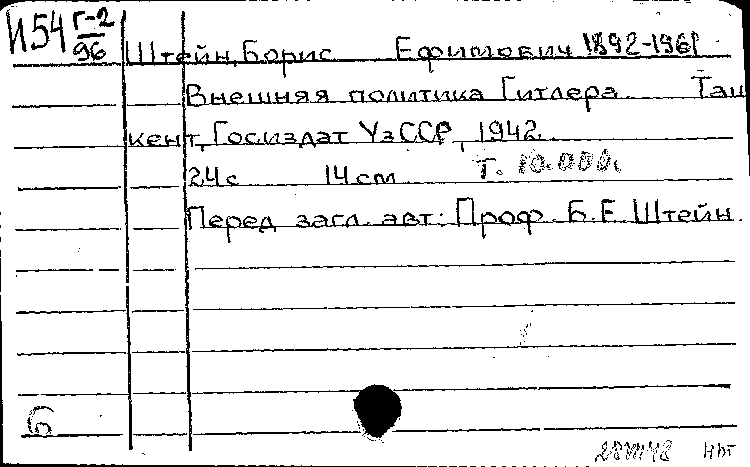 И54 Г-2
96
Штейн, Борис Ефимович 1892-1961
Внешняя политика Гитлера. Таш
кент, Госиздат УзССР, 1942.
24с 14см Т. 10.000.
Перед загл. авт: Проф. Б.Е. Штейн.
Б
28 VII 48